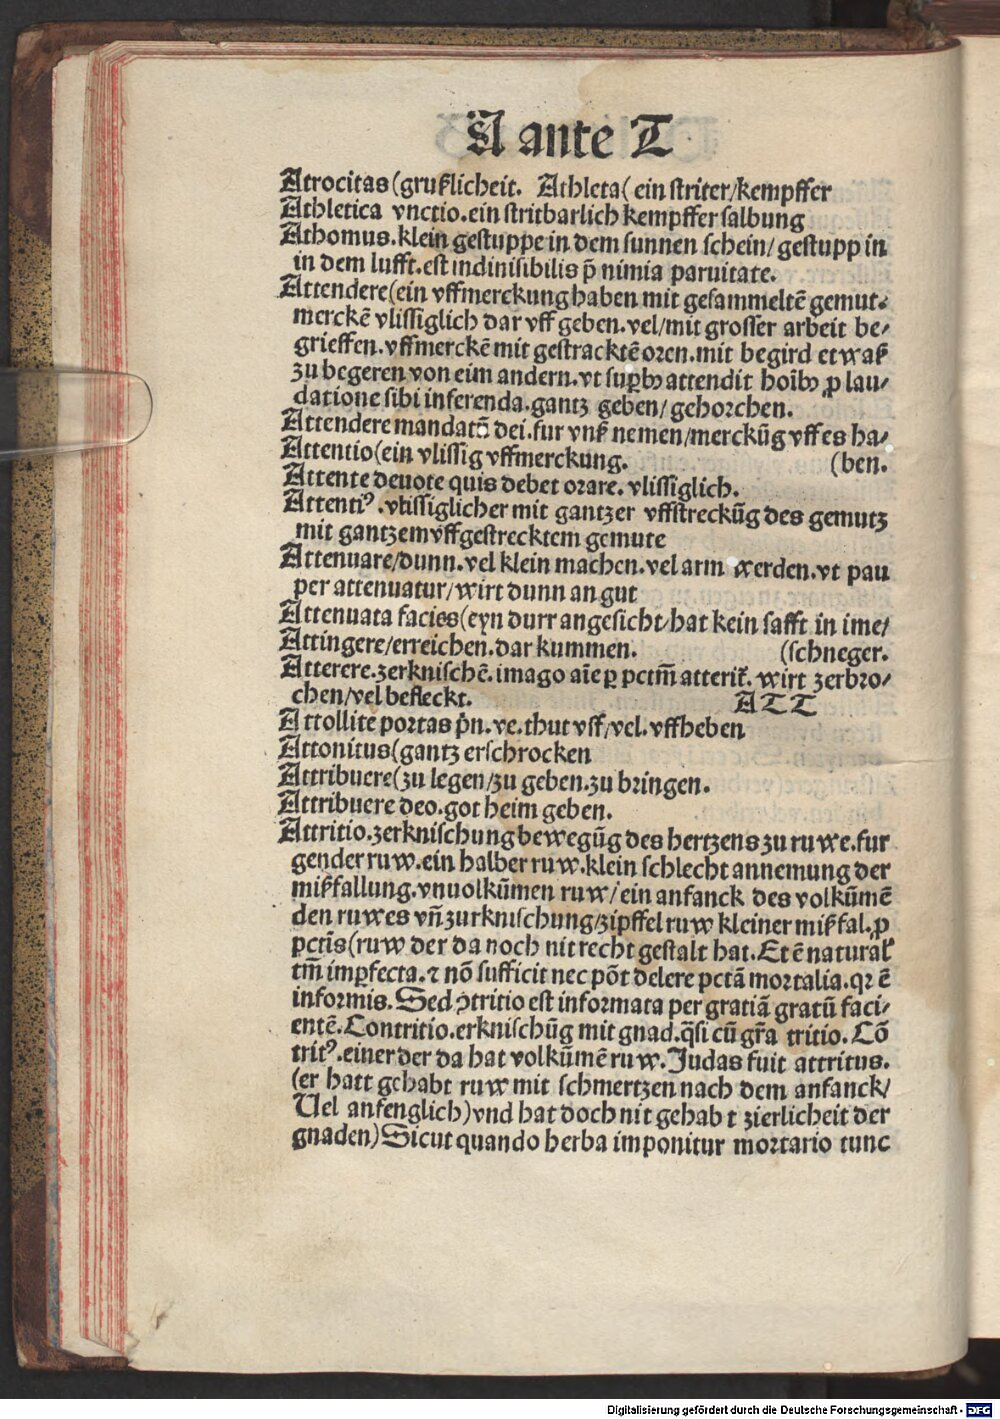 A ante T
Atrocitas(gruſlicheit. Athleta(ein ſtriter/kempffer
Athletica vnctio.ein ſtritbarlich kempffer ſalbung
Athomus.klein geſtuppe in dem ſunnen ſchein/geſtupp in
in dem lufft.est indiniſibilis p̄ nimia paruitate.
Attendere(ein vffmerckung haben mit geſammeltē gemut⸗
merckē vliſſiglich dar vff geben.vel/mit groſſer arbeit be⸗
grieffen.vffmerckē mit geſtracktē oꝛen.mit begird etwaß
zu begeren von eim andern.vt ſuꝑbꝰ attendit hoībꝰ ꝓ lau⸗
datione ſibi inferenda.gantz geben/gehoꝛchen.
Attendere mandatū dei.fur vnß nemen/merckūg vff es ha⸗
Attentio(ein vliſſig vffmerckung. (ben.
Attente deuote quis debet oꝛare. vliſſiglich.
Attentiꝰ.vliſſiglicher mit gantzer vffſtreckūg des gemutz
mit gantzem vffgeſtrecktem gemute
Attenuare/dunn.vel klein machen.vel arm werden.vt pau
per attenuatur/wirt dunn an gut
Attenuata facies(eyn durr angeſicht/hat kein ſafft in ime/
Attingere/erreichen.dar kummen. (ſchneger.
Atterere.zerkniſchē.imago aīe ꝑ pctm̄ atterit̄. wirt zerbꝛo⸗
chen/vel befleckt. ATT
Attollite poꝛtas pn̄.ve.thut vff/vel.vffheben
Attonitus(gantz erſchrocken
Attribuere(zu legen/zu geben.zu bꝛingen.
Attribuere deo.got heim geben.
Attritio.zerkniſchung bewegūg des hertzens zu ruwe.fur
gender ruw.ein halber ruw.klein ſchlecht annemung der
mißfallung.vnuolkūmen ruw/ein anfanck des volkūmē
den ruwes vn̄ zurkniſchung/zipffel ruw kleiner mißfal.ꝓ
pctīs(ruw der da noch nit recht geſtalt hat.Et ē natural̄
tm̄ imꝑfecta.⁊ nō ſufficit nec pōt delere pctā moꝛtalia.qꝛ ē
infoꝛmis.Sed ꝯtritio eſt infoꝛmata per gratiā gratū faci⸗
entē.Contritio.erkniſchūg mit gnad.q̄ſi cū gr̄a tritio.Cō
tritꝰ.einer der da hat volkūmē ruw.Judas fuit attritus.
(er hatt gehabt ruw mit ſchmertzen nach dem anfanck/
Uel anfenglich)vnd hat doch nit gehab t zierlicheit der
gnaden)Sicut quando herba imponitur moꝛtario tunc
Digitalisierung gefördert durch die Deutsche Forschungsgemeinschaft - DFG